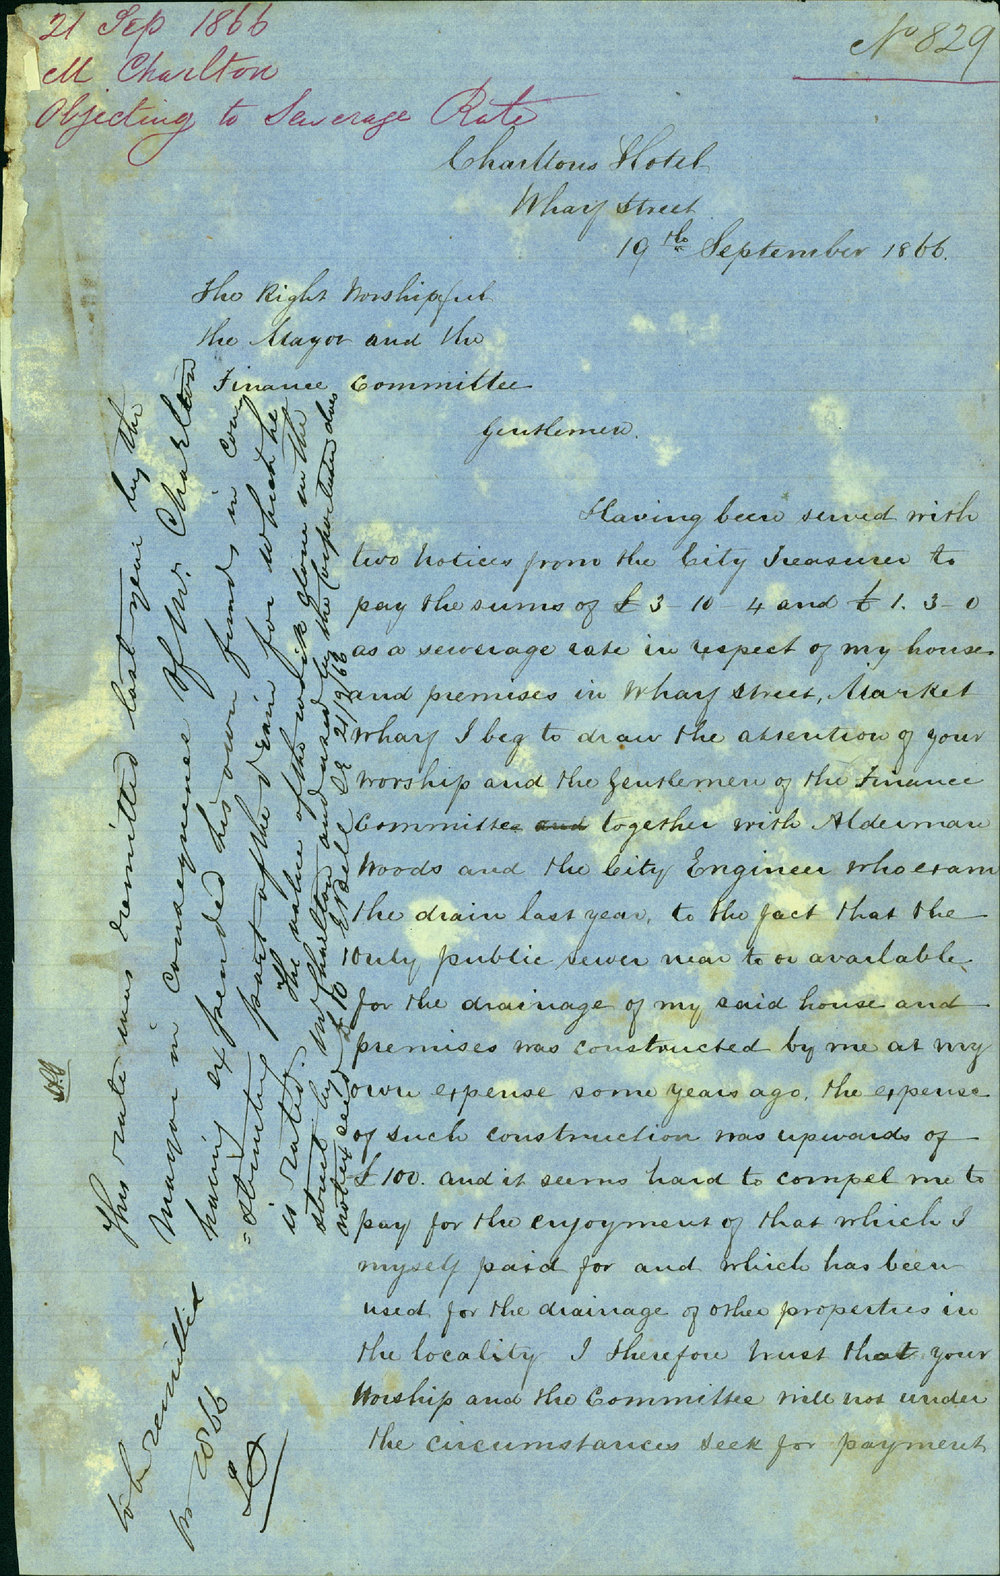 21 Sep 1866
M Charlton
Objecting to Sewerage Rate
No 829
Charltons Hotel
Wharf Street
19th September 1866.
The Right Worshipful
the Mayor and the
Finance Committee
Gentlemen.
Having been served with
two notices from the City Treasurer to
pay the sums of £3-10-4 and £1.3-0
as a sewerage rate in respect of my house
and premises in Wharf Street, Market
Wharf I beg to draw the attention of your
Worship and the Gentlemen of the Finance
Committee and together with Alderman
Woods and the City Engineer who exam
the drain last year, to the fact that the
only public sewer near to or available
for the drainage of my said house and
premises was constructed by me at my
own expense some years ago, the expense
of such construction was upwards of
£100. and it seems hard to compel me to
pay for the enjoyment of that which I
myself paid for and which has been
used for the drainage of other properties in
the locality I therefore trust that your
Worship and the Committee will not under
the circumstances seek for payment
This rate was remitted last year by the
Mayor in consequence of Mr. Charlton
having expended his own funds in con
=structing part of the drain for which he
is rated. The value of the work done in the
street by Mr Charlton and used by the Corporation does
not exceed £10 21/9/66
to be remitted
1866